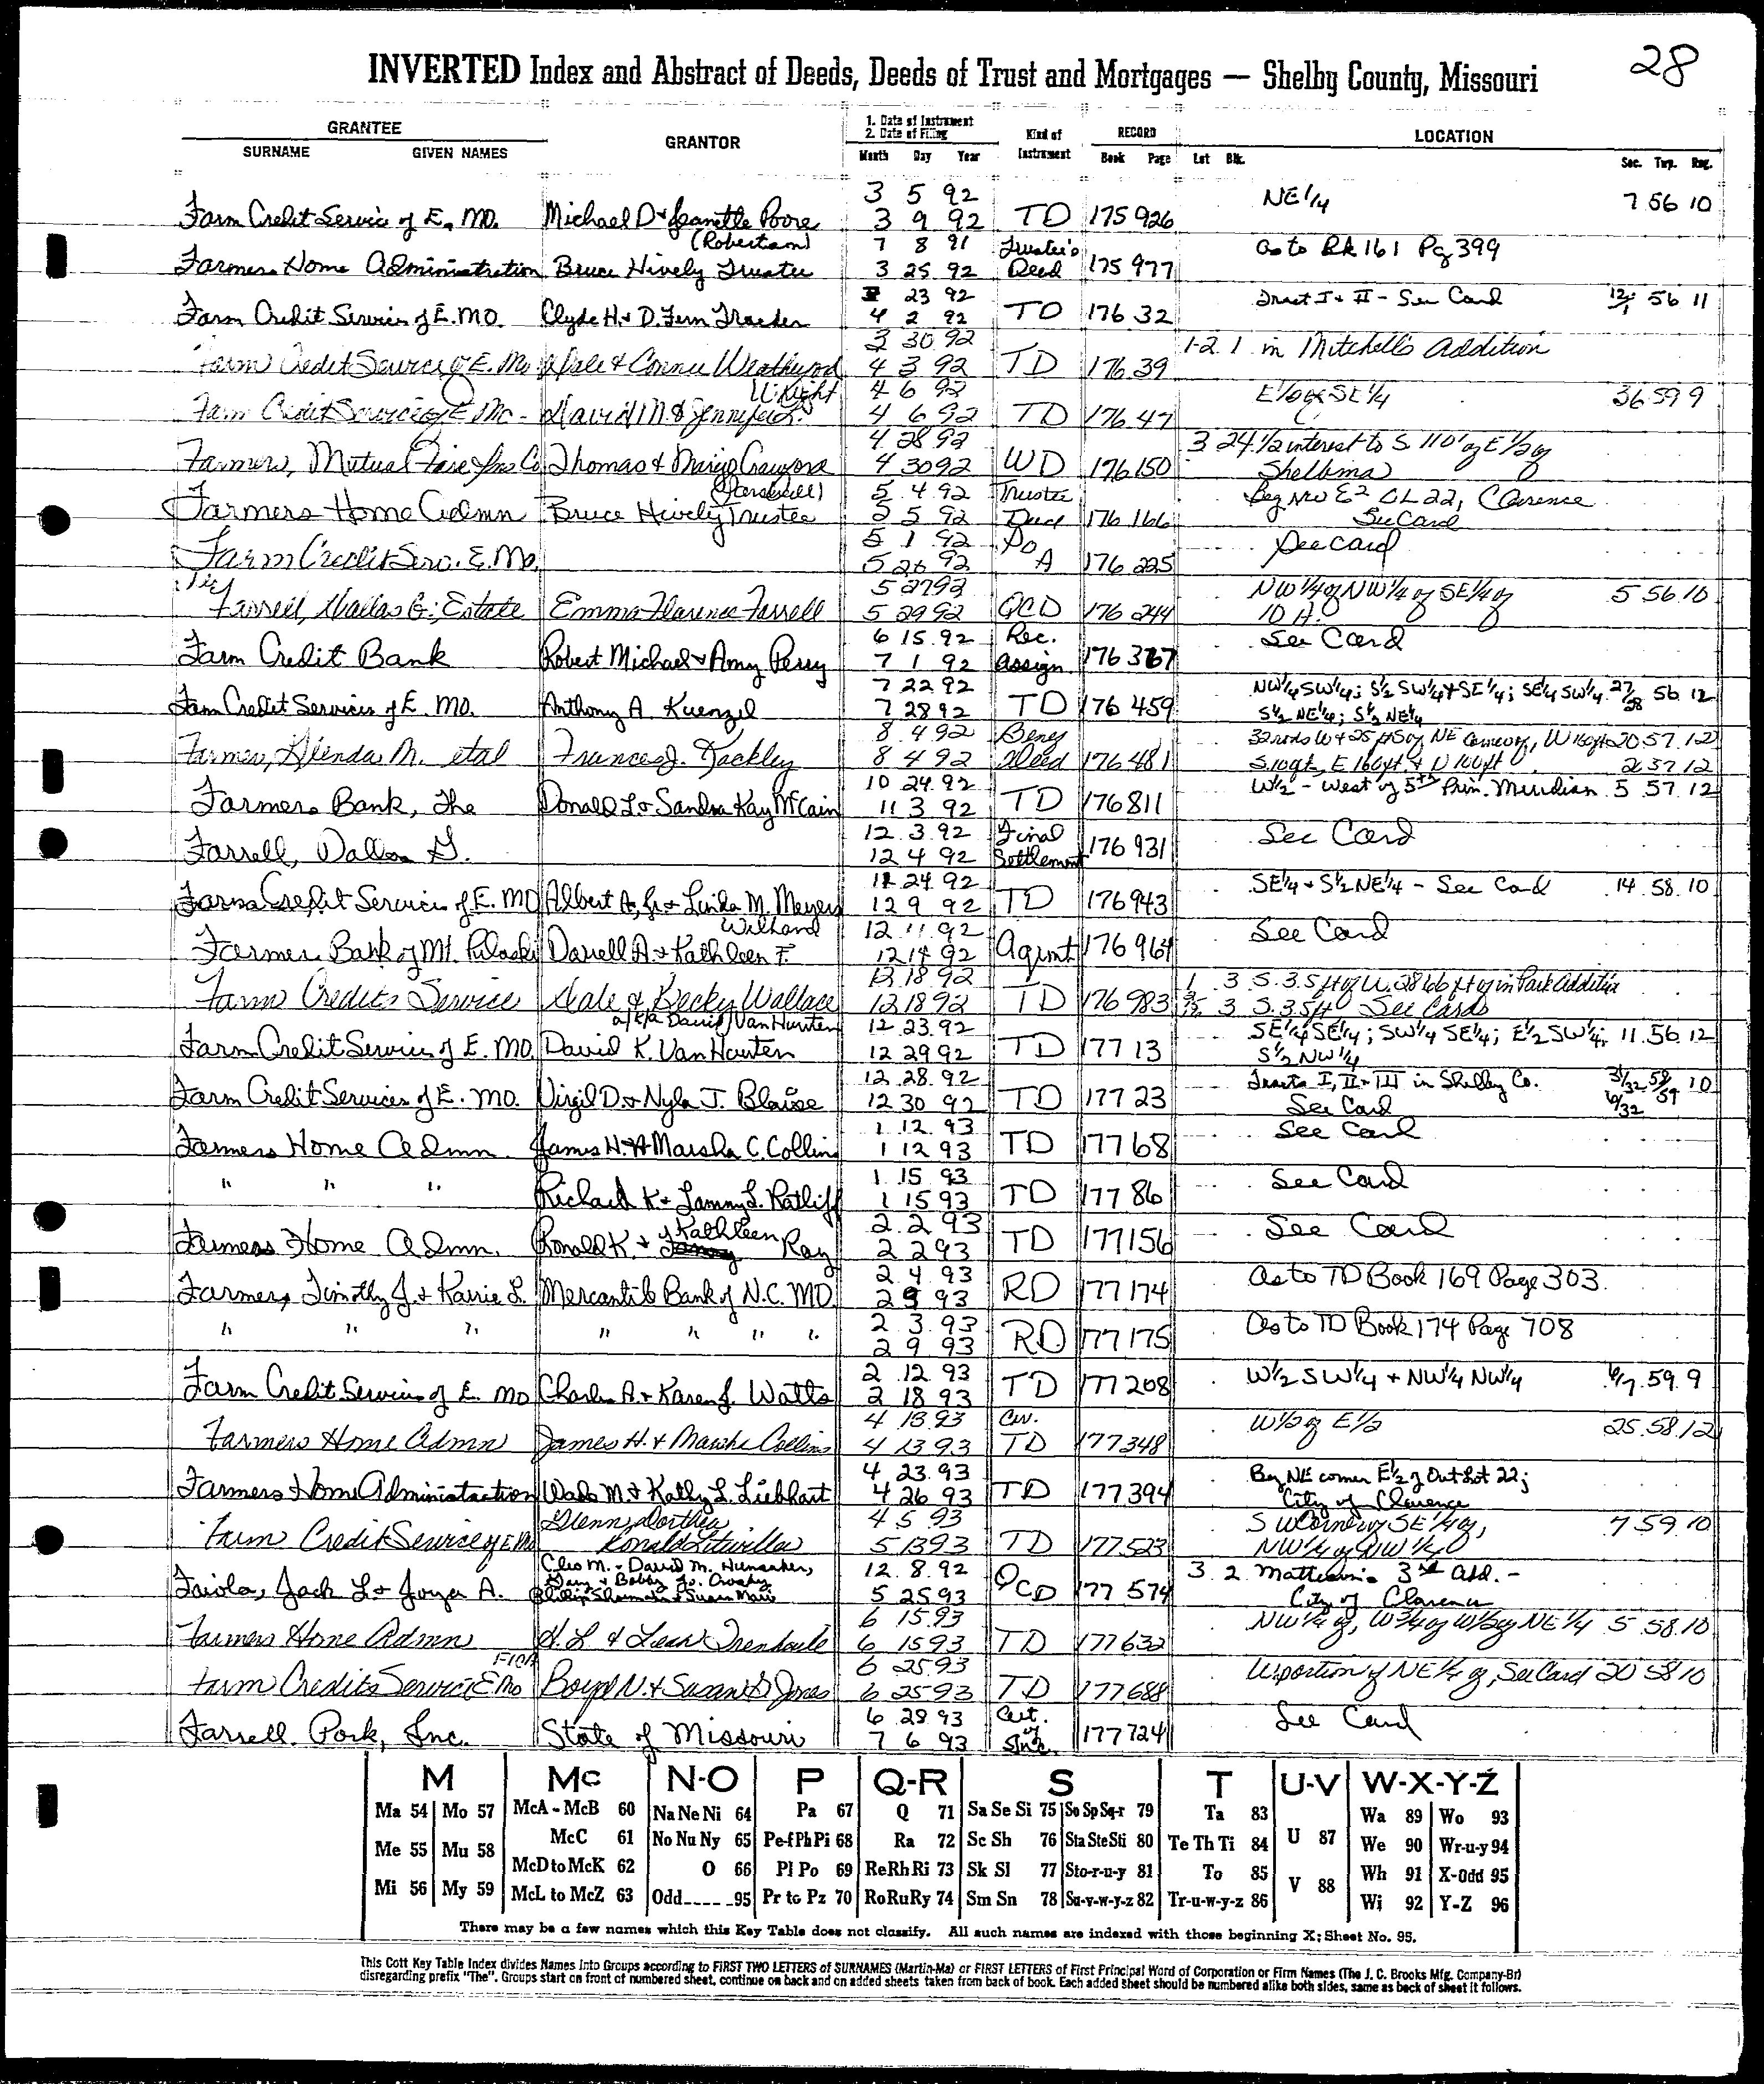 28
INVERTED Index and Abstract of Deeds, Deeds of Trust and Mortgages — Shelby County, Missouri
GRANTEE
SURNAME GIVEN NAMES
GRANTOR
1. Date of Instrument
2. Date of Filing
Month Day Year
Kind of Instrument
RECORD
Book Page
LOCATION
Lot Blk.
Sec. Twp. Rng.
3 5 92 NE 1/4 7 56 10
Farm Credit Service of E. MO. Michael D & Jeanette Poore 3 9 92 TD 175 926
(Robertson) 7 8 91 Trustee's as to Bk 161 Pg 399
Farmers Home Administration Bruce Hively Trustee 3 25 92 Deed 175 977
23 92 Tract I & II - See Card 56 11
Farm Credit Services of E. MO. Clyde H. & D. Fern 4 2 92 TD 176 32
3 30 92 1-2 1 in Mitchell's Addition
Farm Credit Services of E. Mo Dale & Connie 4 3 92 TD 176 39
Wright 4 6 92 E 1/2 of SE 1/4 36 59 9
Farm Credit Service of E Mo - David M. & Jennifer L. 4 6 92 TD 176 47
4 28 92 3 24 1/2 interest to S 110' of E 1/2 of
Farmers, Mutual Fire Ins Co Thomas & Margo Crawford 4 30 92 WD 176 150 Shelbina
5 4 92 Trustee Beg NW E2 OL 22, Clarence
Farmers Home Admn Bruce Hively Trustee 5 5 92 Deed 176 166 See Card
5 1 92 Po See card
Farm Credit Serv. E. Mo. 5 26 92 A 176 225
5 27 92 NW 1/4 of NW 1/4 of SE 1/4 of 5 56 10
Farrell, Dallas G., Estate Emma Florence Farrell 5 29 92 QCD 176 244 10 A.
6 15 92 Rec. See Card
Farm Credit Bank Robert Michael & Amy Perry 7 1 92 Assign 176 367
7 22 92 NW 1/4 SW 1/4; S 1/2 SW 1/4 & SE 1/4; SE 1/4 SW 1/4 27/28 56 12
Farm Credit Services of E. MO. Anthony A. Kuenzel 7 28 92 TD 176 459 S 1/2 NE 1/4; S 1/2 NE 1/4
8 4 92 Beney 32 rods W & 25 ft S of NE corner of, W 160 ft 20 57 12
Farmer, Glenda M. etal Frances J. Kackley 8 4 92 Deed 176 481 E 160 ft & N 100 ft
10 24 92 W 1/2 - West of 5th Prin. Meridian 5 57 12
Farmers Bank, The Donald L. & Sandra Kay McCain 11 3 92 TD 176 811
12 3 92 Final See Card
Farrell, Dallas G. 12 4 92 Settlement 176 931
11 24 92 SE 1/4 & S 1/2 NE 1/4 - See Card 14 58 10
Farm Credit Services of E. MO Albert A, Jr. & Linda M. Meyers 12 9 92 TD 176 943
12 11 92 See Card
Farmers Bank of Mt. Pulaski Darrell A. & Kathleen F. 12 14 92 Agrmt 176 964
12 18 92 1 3 S. 3.5 ft of in Park Addition
Farm Credits Service Dale & Becky Wallace 12 18 92 TD 176 983 3 S. 3.5 ft See Cards
a/k/a David VanHouten 12 23 92 SE 1/4 SE 1/4; SW 1/4 SE 1/4; E 1/2 SW 1/4; 11 56 12
Farm Credit Services of E. MO. David K. VanHouten 12 29 92 TD 177 13 S 1/2 NW 1/4
12 28 92 Tracts I, II & III in Shelby Co. 10
Farm Credit Services of E. MO. Virgil D. & Nyla J. Blaise 12 30 92 TD 177 23 See Card
1 12 93 See Card
Farmers Home Admn. James H. & Marsha C. Collins 1 12 93 TD 177 68
1 15 93 See Card
" " " Richard K. & Tammy L. Ratliff 1 15 93 TD 177 86
Kathleen 2 2 93 See Card
Farmers Home Admn. Ronald K. & Ray 2 2 93 TD 177 156
2 4 93 As to TD Book 169 Page 303
Farmer, Timothy J. & Karrie L. Mercantile Bank of N.C. MO 2 9 93 RD 177 174
2 3 93 As to TD Book 174 Page 708
" " " " " " " 2 9 93 RD 177 175
2 12 93 W 1/2 SW 1/4 & NW 1/4 NW 1/4 6/7 59 9
Farm Credit Services of E. MO Charles A. & Karen J. Watts 2 18 93 TD 177 208
4 13 93 Cor. W 1/2 of E 1/2 25 58 12
Farmers Home Admn James H. & Marsha Collins 4 13 93 TD 177 348
4 23 93 Beg NE corner E 1/2 of Out Lot 22;
Farmers Home Administration Wade M. & Kathy L. Liebhart 4 26 93 TD 177 394 City of Clarence
Glenn, Dorthea 4 5 93 SW Corner of SE 1/4 of, 7 59 10
Farm Credit Service of E Mo Ronald 5 13 93 TD 177 523 NW 1/4 of NW 1/4
Cleo M. - David M. Hunsaker, 12 8 92 3 2 3rd Add. -
Faiola, Jack L. & Joyce A. Gary & Bobby Jo. Crosby 5 25 93 QCD 177 574 City of Clarence
6 15 93 NW 1/4 of, W 3/4 of W 1/2 of NE 1/4 5 58 10
Farmers Home Admn 6 15 93 TD 177 632
6 25 93 W portion of NE 1/4 of, See Card 20 58 10
Farm Credits Service E Mo Boyd N. & Susan Jones 6 25 93 TD 177 688
6 28 93 Cert. of See Card
Farrell Pork, Inc. State of Missouri 7 6 93 Inc. 177 724
M Mc N-O P Q-R S T U-V W-X-Y-Z
Ma 54 Mo 57 McA-McB 60 Na Ne Ni 64 Pa 67 Q 71 Sa Se Si 75 So Sp Sq-r 79 Ta 83 U 87 Wa 89 Wo 93
Me 55 Mu 58 McC 61 No Nu Ny 65 Pe-f Ph Pi 68 Ra 72 Sc Sh 76 Sta Ste Sti 80 Te Th Ti 84 We 90 Wr-u-y 94
McD to McK 62 O 66 Pl Po 69 Re Rh Ri 73 Sk Sl 77 Sto-r-u-y 81 To 85 V 88 Wh 91 X-Odd 95
Mi 56 My 59 McL to McZ 63 Odd-----95 Pr to Pz 70 Ro Ru Ry 74 Sm Sn 78 Su-v-w-y-z 82 Tr-u-w-y-z 86 Wi 92 Y-Z 96
There may be a few names which this Key Table does not classify. All such names are indexed with those beginning X; Sheet No. 95.
This Cott Key Table Index divides Names into Groups according to FIRST TWO LETTERS of SURNAMES (Martin-Ma) or FIRST LETTERS of First Principal Word of Corporation or Firm Names (The J. C. Brooks Mfg. Company-Br)
disregarding prefix "The". Groups start on front of numbered sheet, continue on back and on added sheets taken from back of book. Each added sheet should be numbered alike both sides, same as back of sheet it follows.